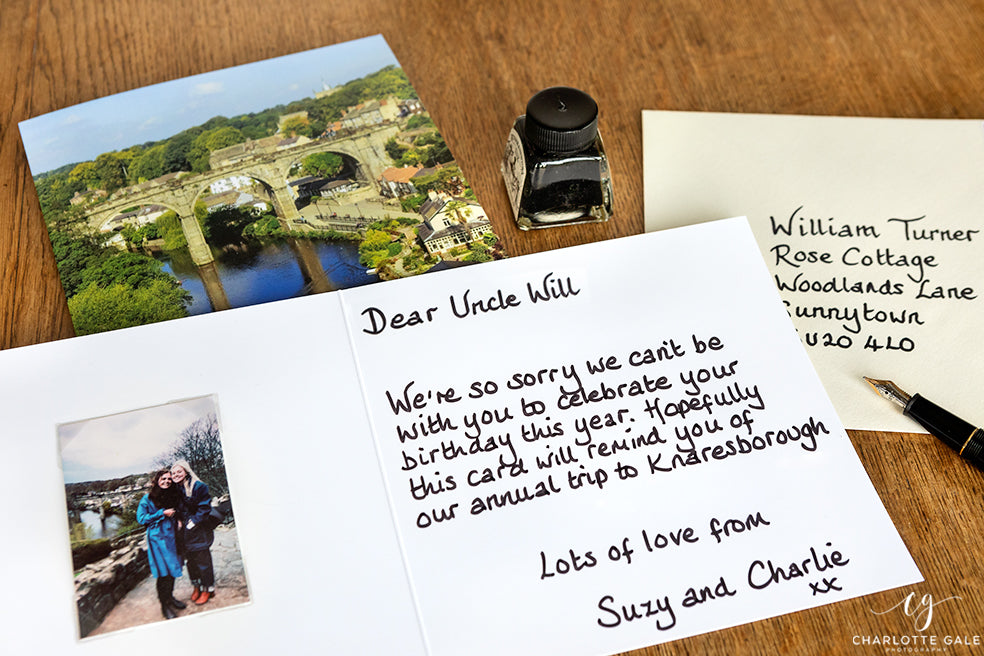 Dear Uncle Will
We're so sorry we can't be
with you to celebrate your
birthday this year. Hopefully
this card will remind you of
our annual trip to Knaresborough
Lots of love from
Suzy and Charlie
xx
William Turner
Rose Cottage
Woodlands Lane
Sunnytown
4LO
cg
CHARLOTTE GALE
PHOTOGRAPHY